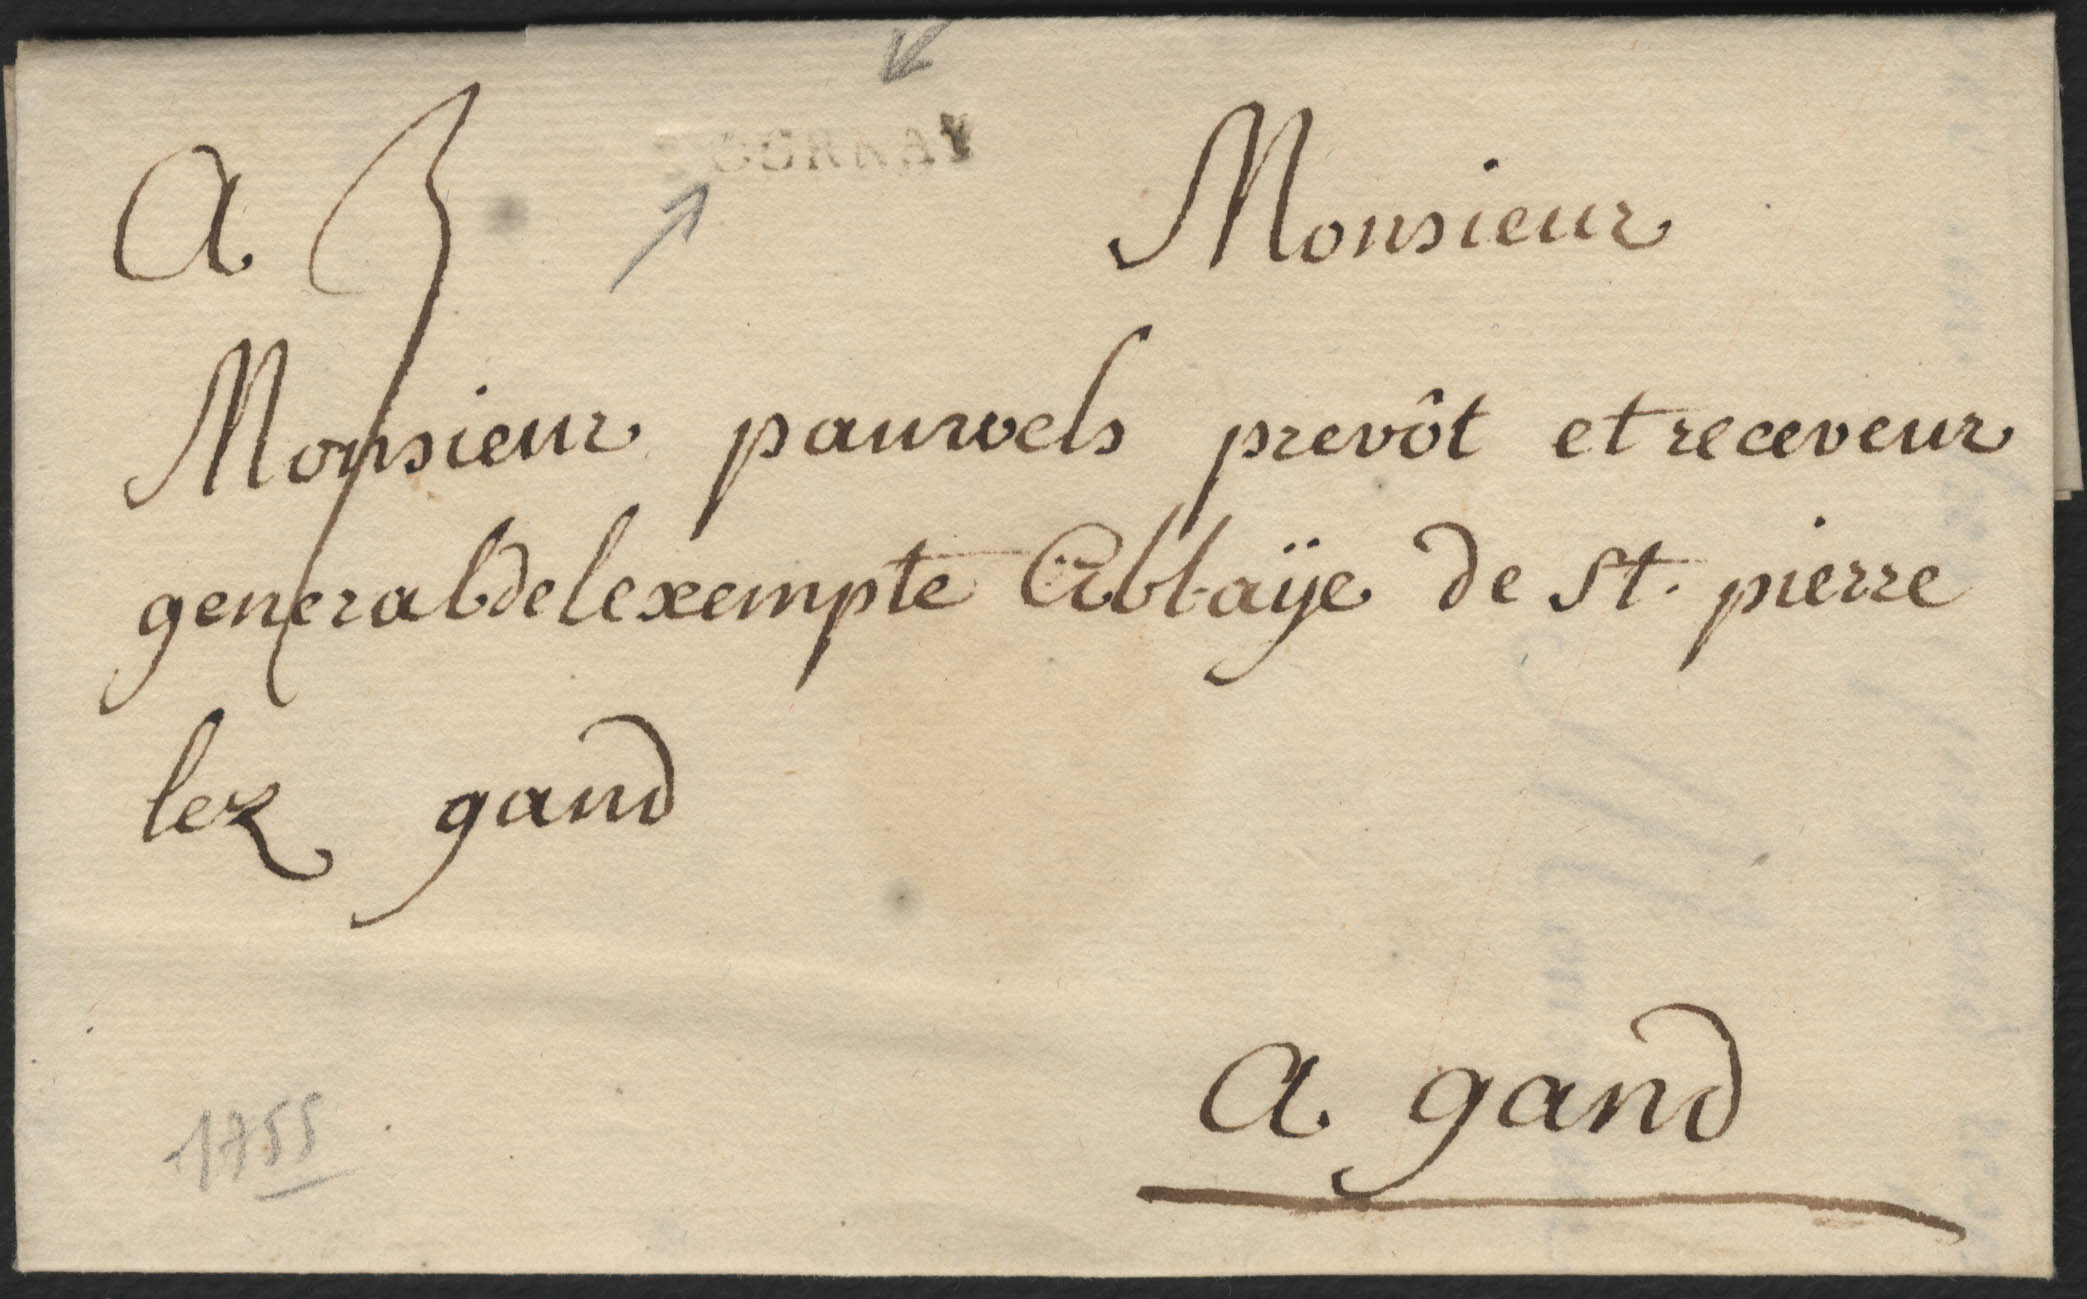 TOURNAY
A 3 Monsieur
Monsieur pauwels prevôt et receveur
general de lexempte Abbaÿe de St. pierre
lez gand
A gand
1755